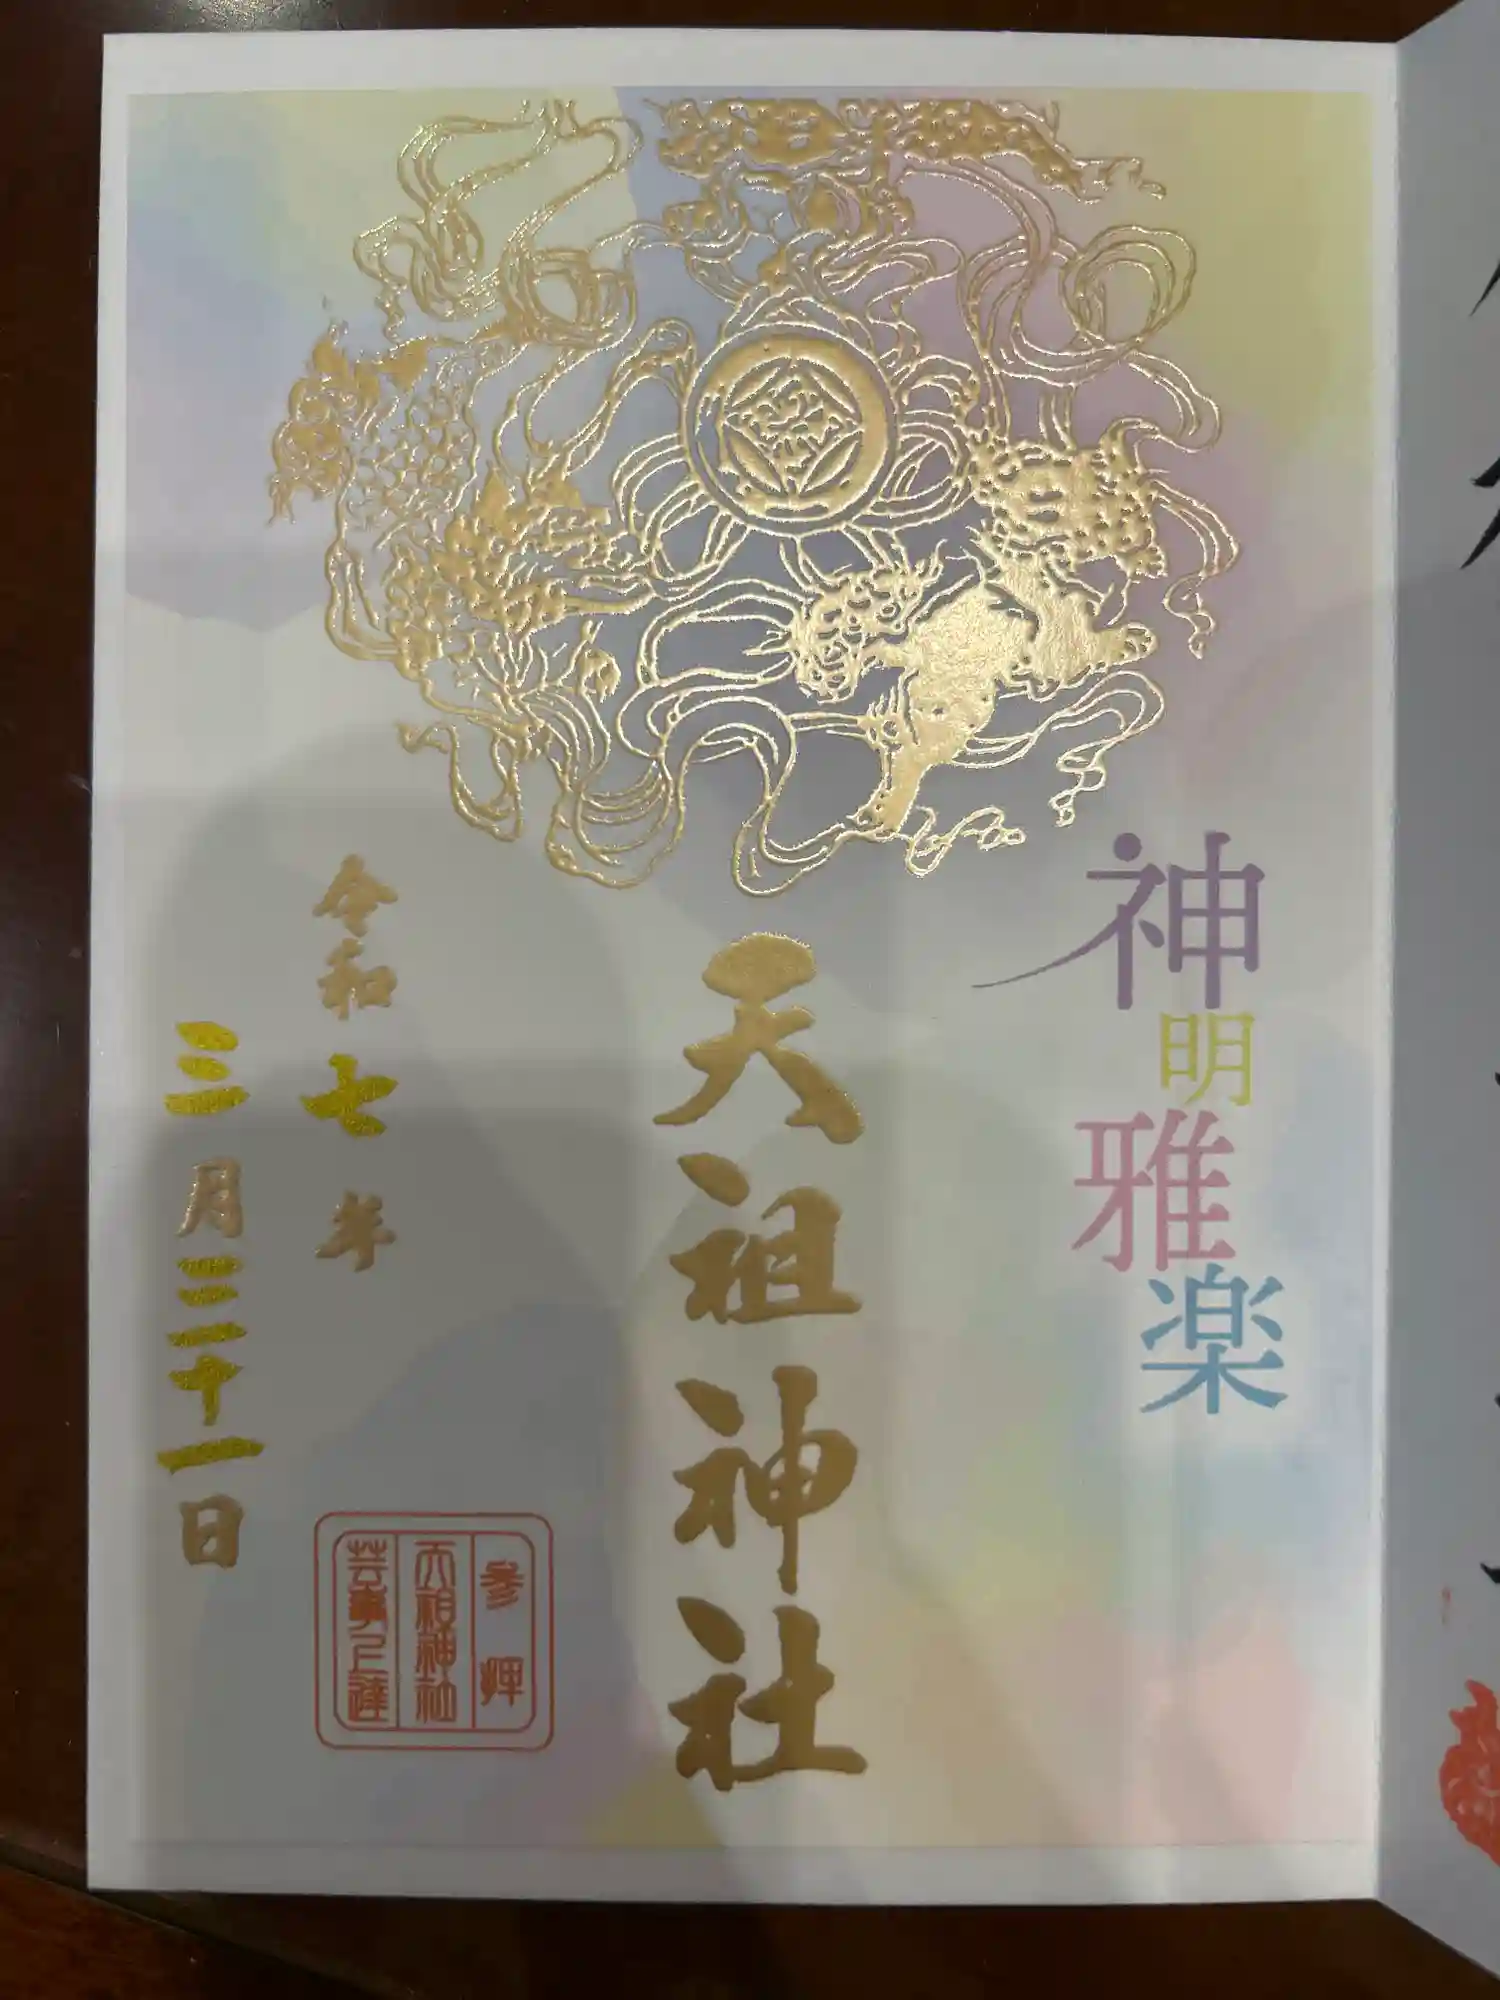 神明雅楽
天祖神社
令和七年
三月三十一日
参拝
天祖神社
芸事上達